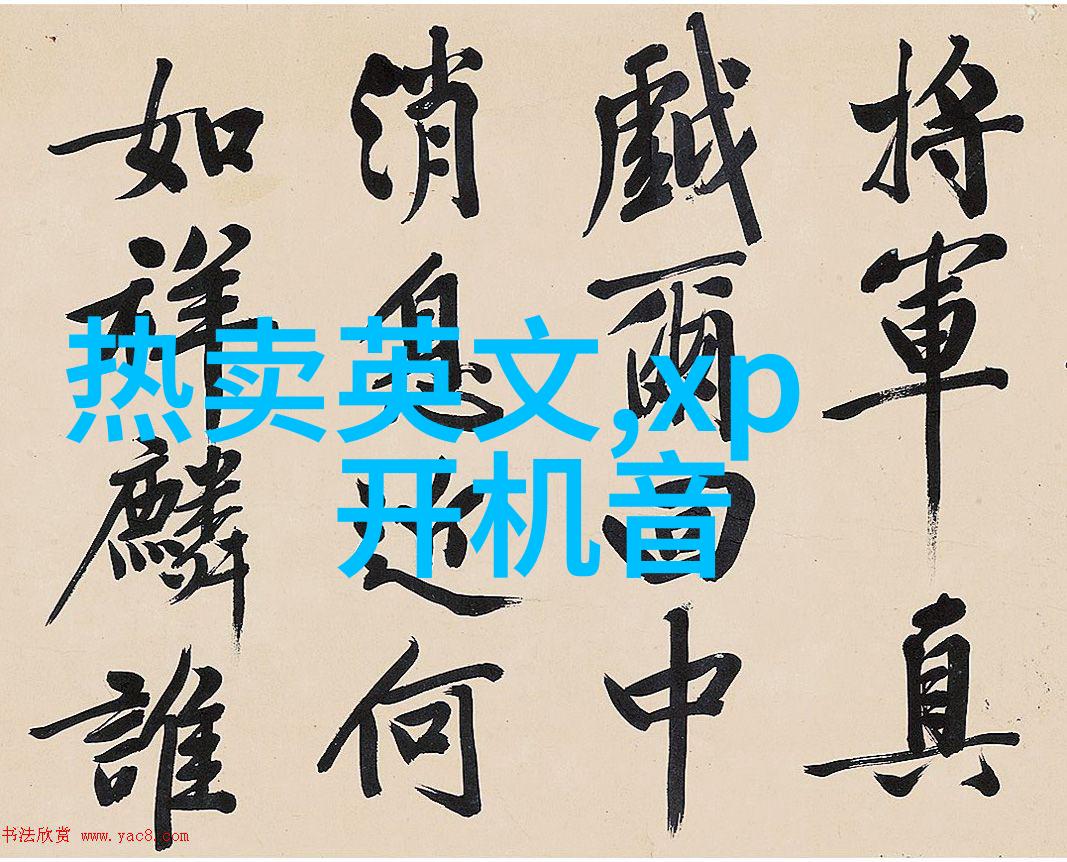 将軍真
戯爾中
消息何
如祥麟誰
热卖英文,xp
开机音
书法欣赏 www.yac8.com